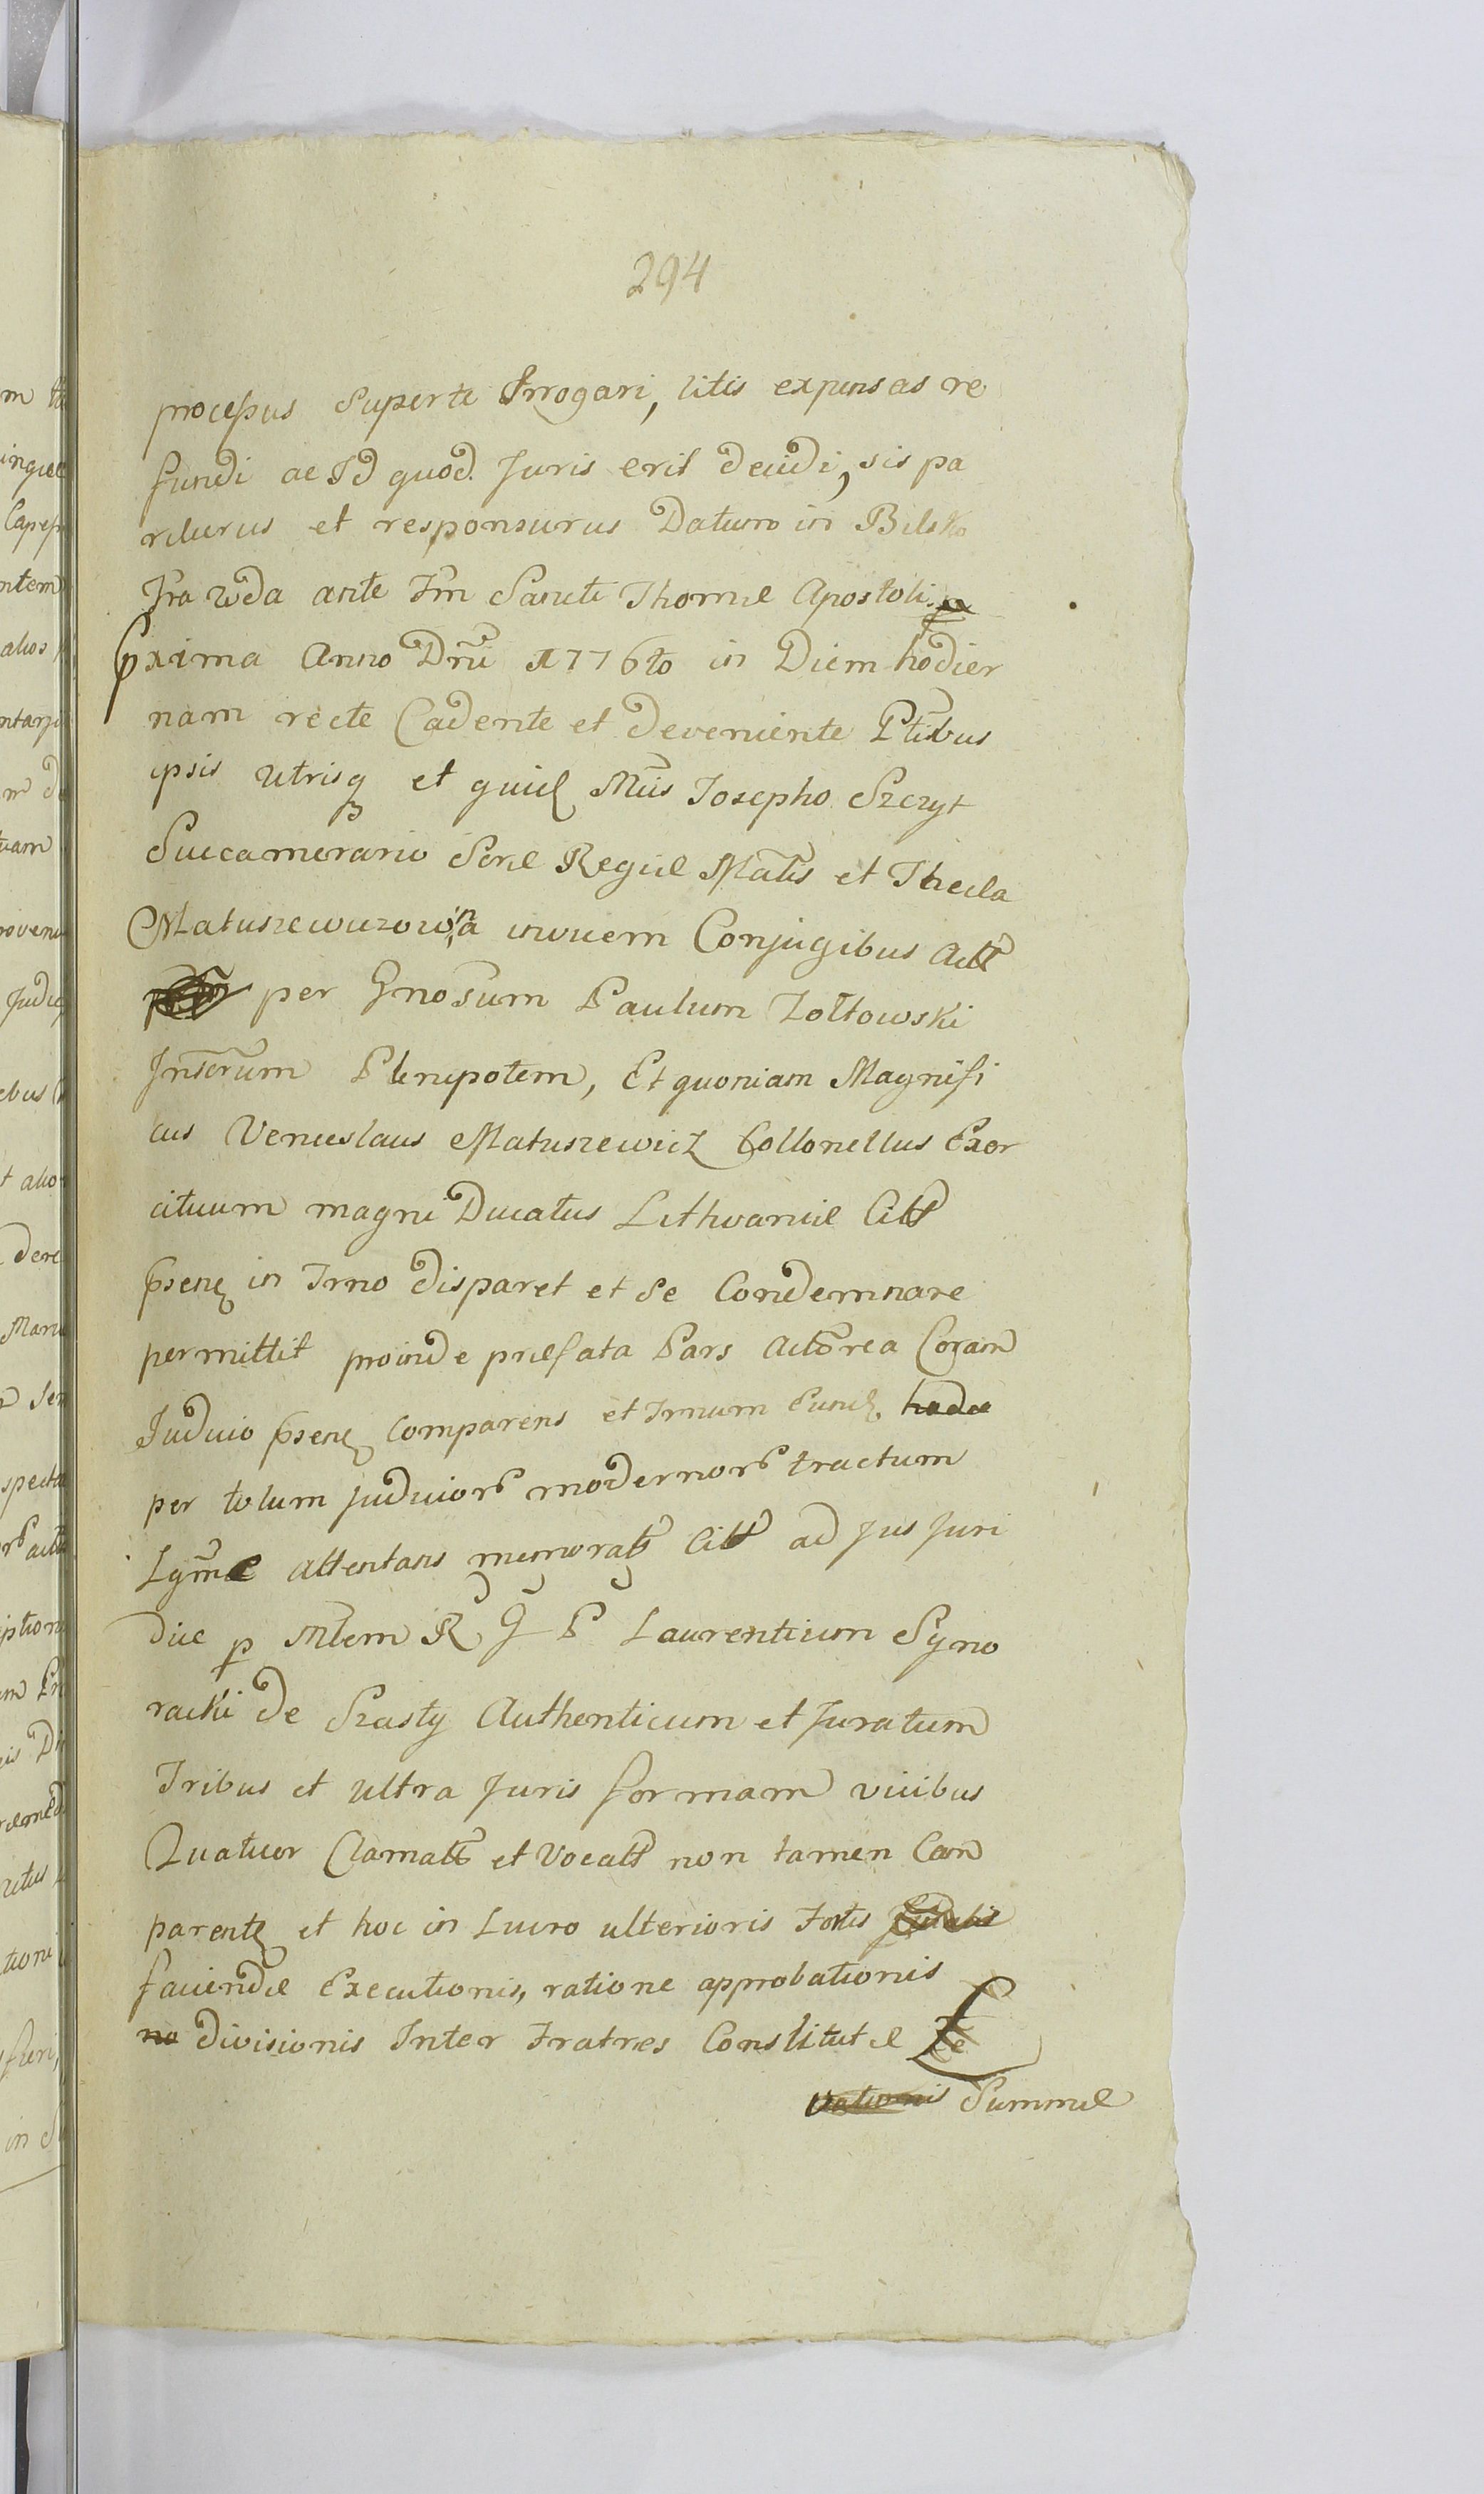 294
processus Superte Irrogari, litis expensas re
fundi ac Id quod Juris erit decidi, sis pa
riturus et responsurus Datum in Bilsko
Fra 2da ante Fm Sancti Thomæ Apostoli
pxima Anno Dni 1776to in Diem hodier
nam recte Cadente et deveniente Ptibus
ipsis utrisq et quid Mcis Josepho Szczyt
Succamerario Scræ Regiæ Matis et Thecla
Matuszewiczowna invicem Conjugibus Actt
per Gnosum Paulum Zołtowski
Jnscrum Plenipotem, Et quoniam Magnifi
cus Venceslaus Matuszewicz Collonellus Exer
cituum magni Ducatus Lithvaniæ Citt
psens in Trno disparet et se Condemnare
permittit proinde præfata Pars Actorea Coram
Judicio psens Comparens et Trnum Eund
per totum judicior modernor tractum
Lgme attentans memorats Citt ad Jus Juri
dice p Mtem R G P Laurentium Syno
racki de Szasty Authenticum et Juratum
Tribus et ultra Juris formam vicibus
Quatuor Clamatt et Vocatt non tamen Com
parente et hoc in Lucro ulterioris Fortis
faciendæ Executionis, ratione approbationis
divisionis Inter Fratres Constitutæ
Summæ